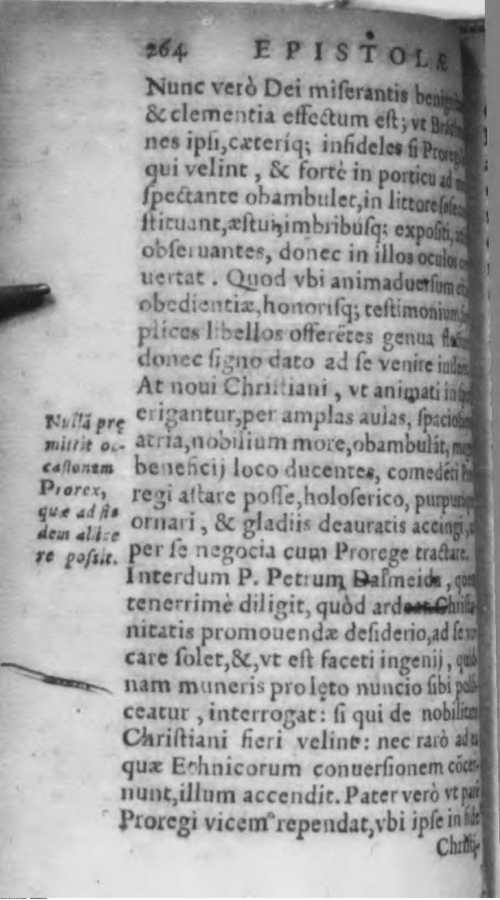 264 EPISTOLÆ
Nunc verò Dei miſerantis
& clementia effectum eſt; vt
nes ipſi, cæteríq; infideles ſi
qui velint, & fortè in porticu ad
ſpectante obambulet, in littore
ſtituant, æſtui, imbribuſq; expoſiti,
obſeruantes, donec in illos oculos
uertat. Quod vbi animaduerſum
obedientiæ, honoriſq; teſtimonium,
plices libellos offerẽtes genua
donec ſigno dato ad ſe venire
At noui Chriſtiani, vt animati in
erigantur, per amplas aulas,
atria, nobilium more, obambulãt,
beneficij loco ducentes,
regi aſtare poſſe, holoſerico,
ornari, & gladiis deauratis accingi,
per ſe negocia cum Prorege tractare.
Interdum P. Petrum Daſmeida,
tenerrimè diligit, quòd
nitatis promouendæ deſiderio, ad ſe
care ſolet, &, vt eſt faceti ingenij,
nam muneris pro lęto nuncio ſibi
ceatur, interrogat: ſi qui de nobilitate
Chriſtiani fieri velint: nec rarò ad
quæ Ethnicorum conuerſionem cõcer-
nunt, illum accendit. Pater verò vt
Proregi vicem rependat, vbi ipſe in
Nullã prę
mittit oc-
caſionem
Prorex,
quæ ad
dem allice
re poſſit.